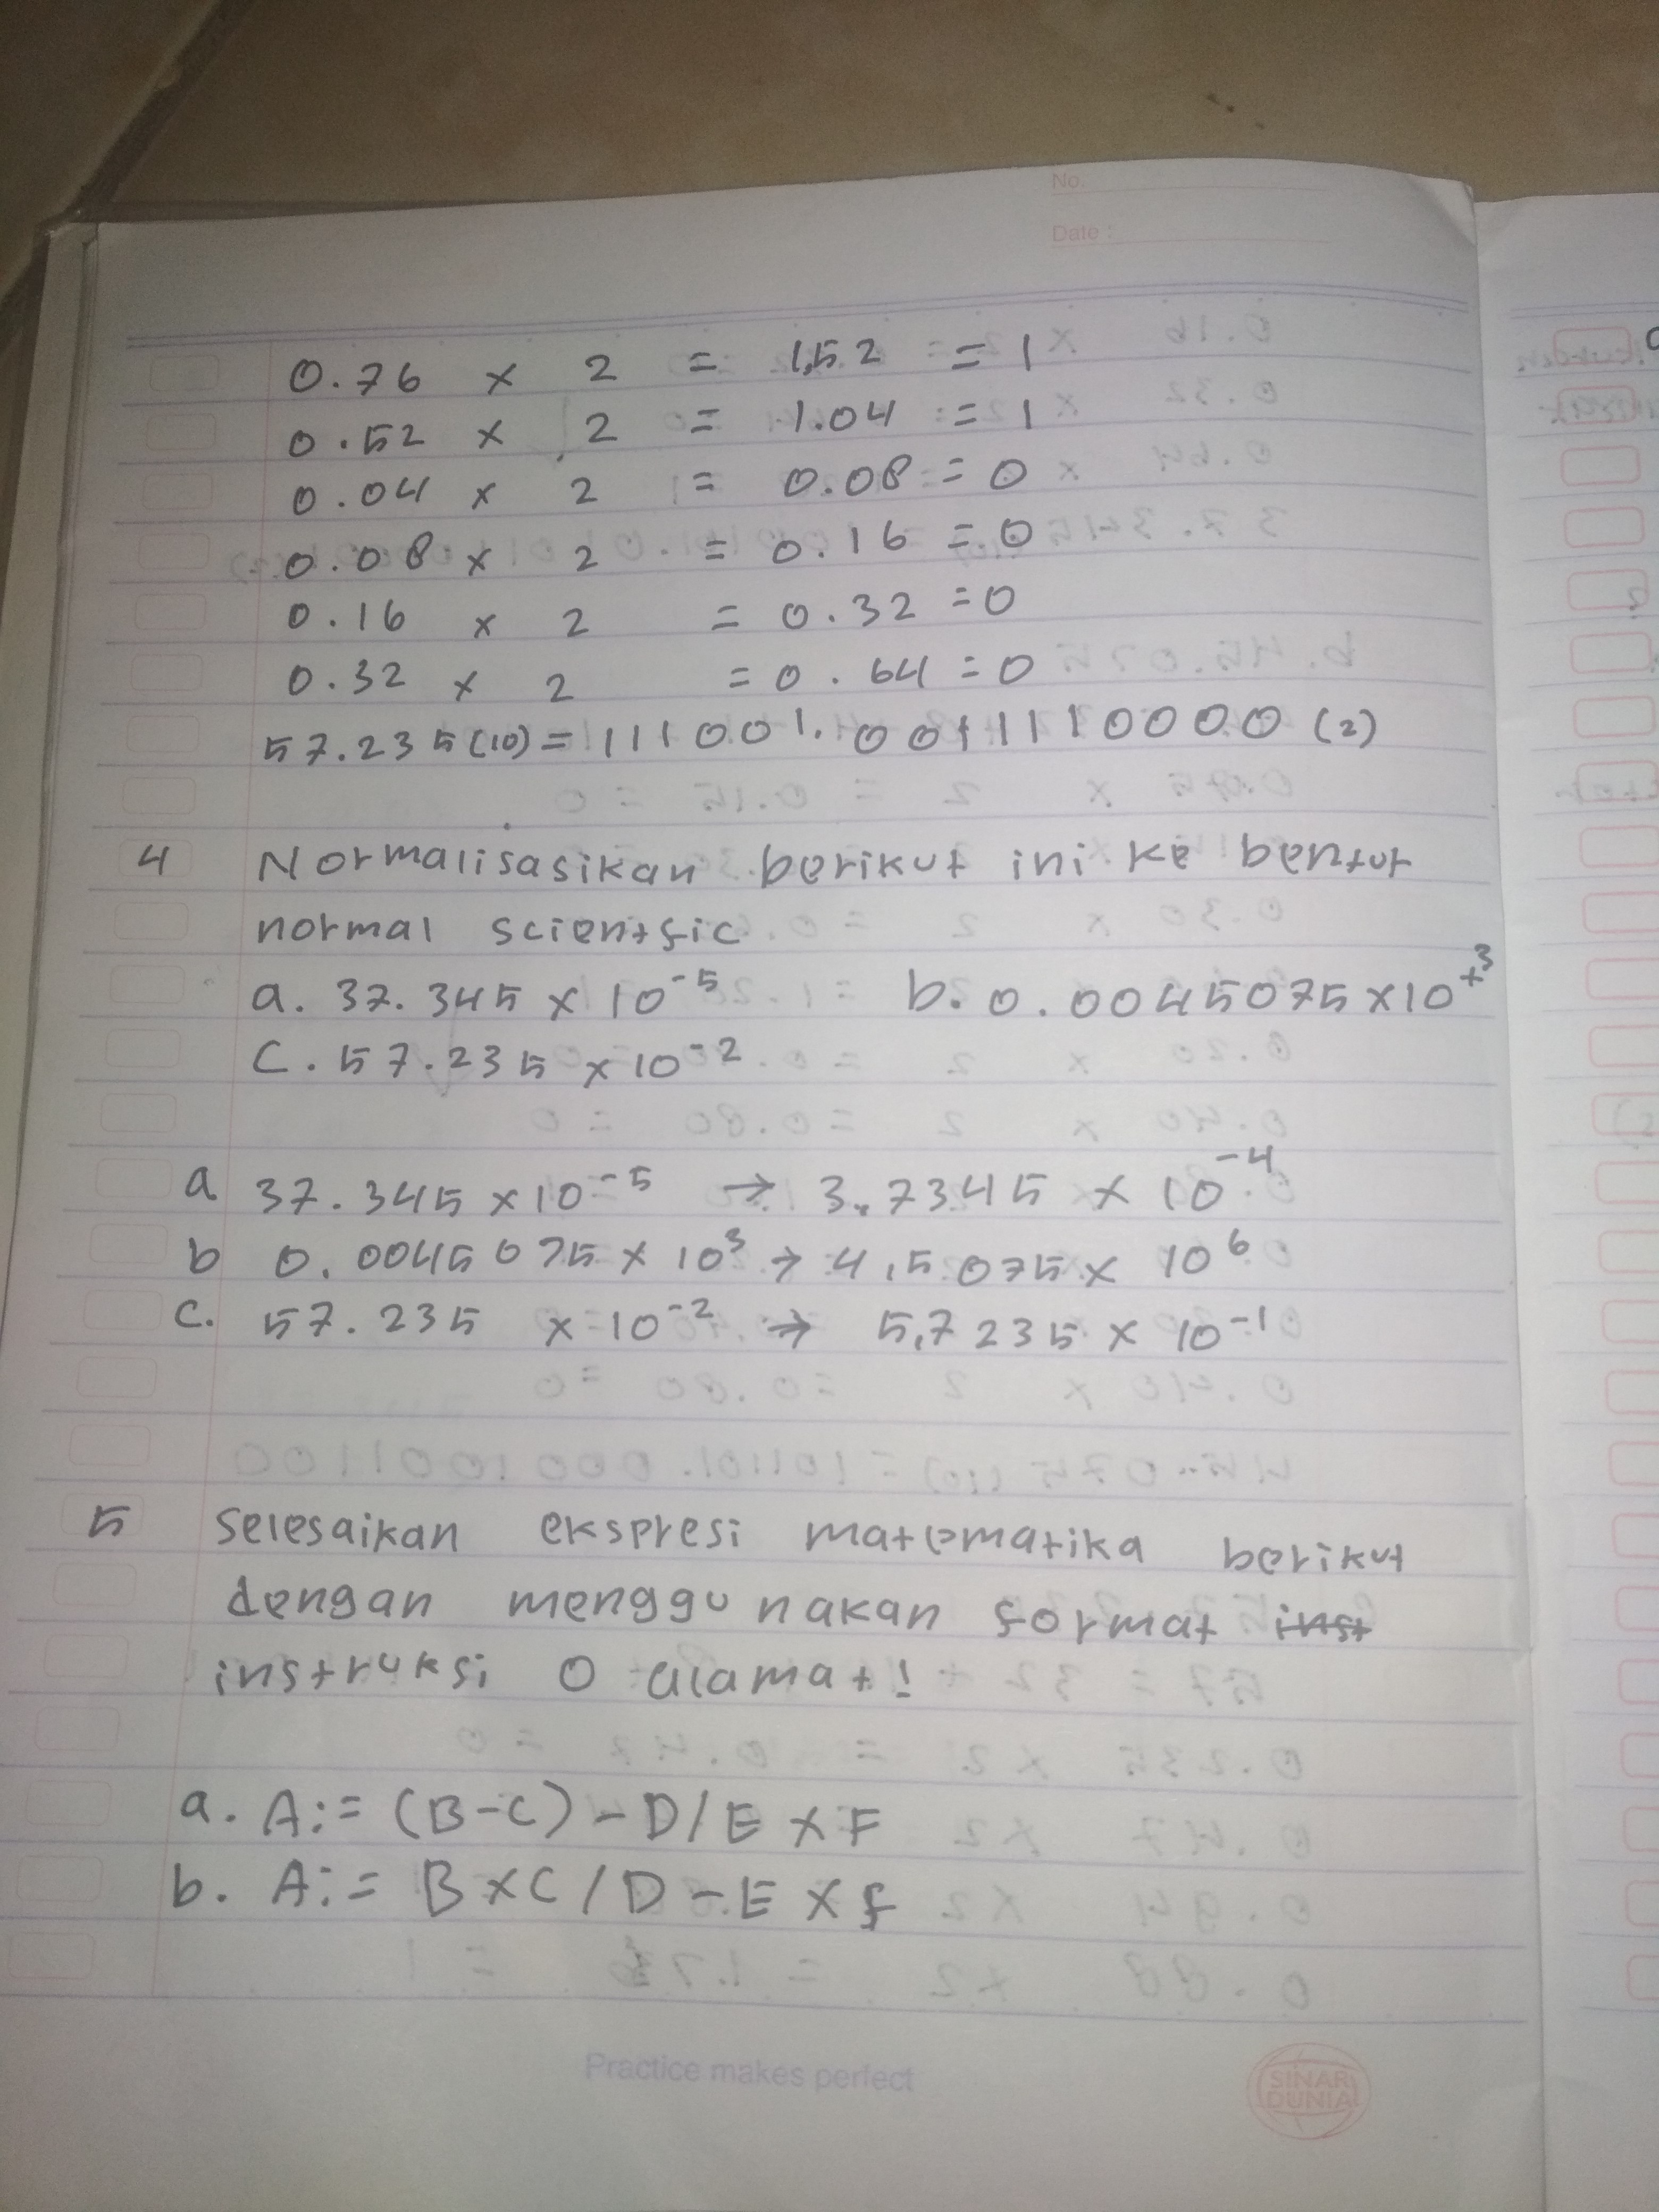 No.
Date :
0.76 x 2 = 1,52 = 1
0.52 x 2 = 1.04 = 1
0.04 x 2 = 0.08 = 0
0.08 x 2 = 0.16 = 0
0.16 x 2 = 0.32 = 0
0.32 x 2 = 0.64 = 0
57.235(10) = 111001.0011110000 (2)
4 Normalisasikan berikut ini ke bentuk
normal scientfic
a. 37.345 x 10⁻⁵ b. 0.0045075 x 10⁺³
C. 57.235 x 10⁻²
a 37.345 x 10⁻⁵ → 3.7345 x 10⁻⁴
b 0.0045075 x 10³ → 4,5075 x 10⁶
c. 57.235 x 10⁻² → 5,7235 x 10⁻¹
5 Selesaikan ekspresi matematika berikut
dengan menggunakan format inst
instruksi 0 alamat!
a. A:= (B-C) - D/E x F
b. A:= B x C / D - E x f
Practice makes perfect
SINAR
DUNIA